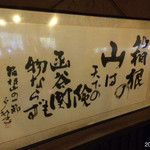 箱根の
山は
天下の
険
函谷関も
物ならず
箱根山の歌